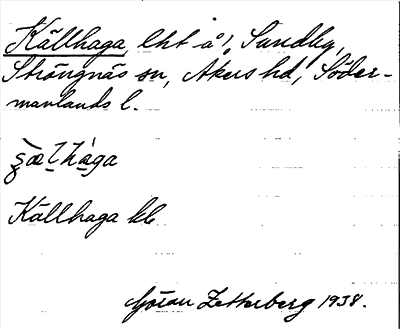 Källhaga, lht å 1, Sundby,
Strängnäs sn, Åkers hd, Söder-
manlands l.
Källhaga kb
Göran Zetterberg 1938.